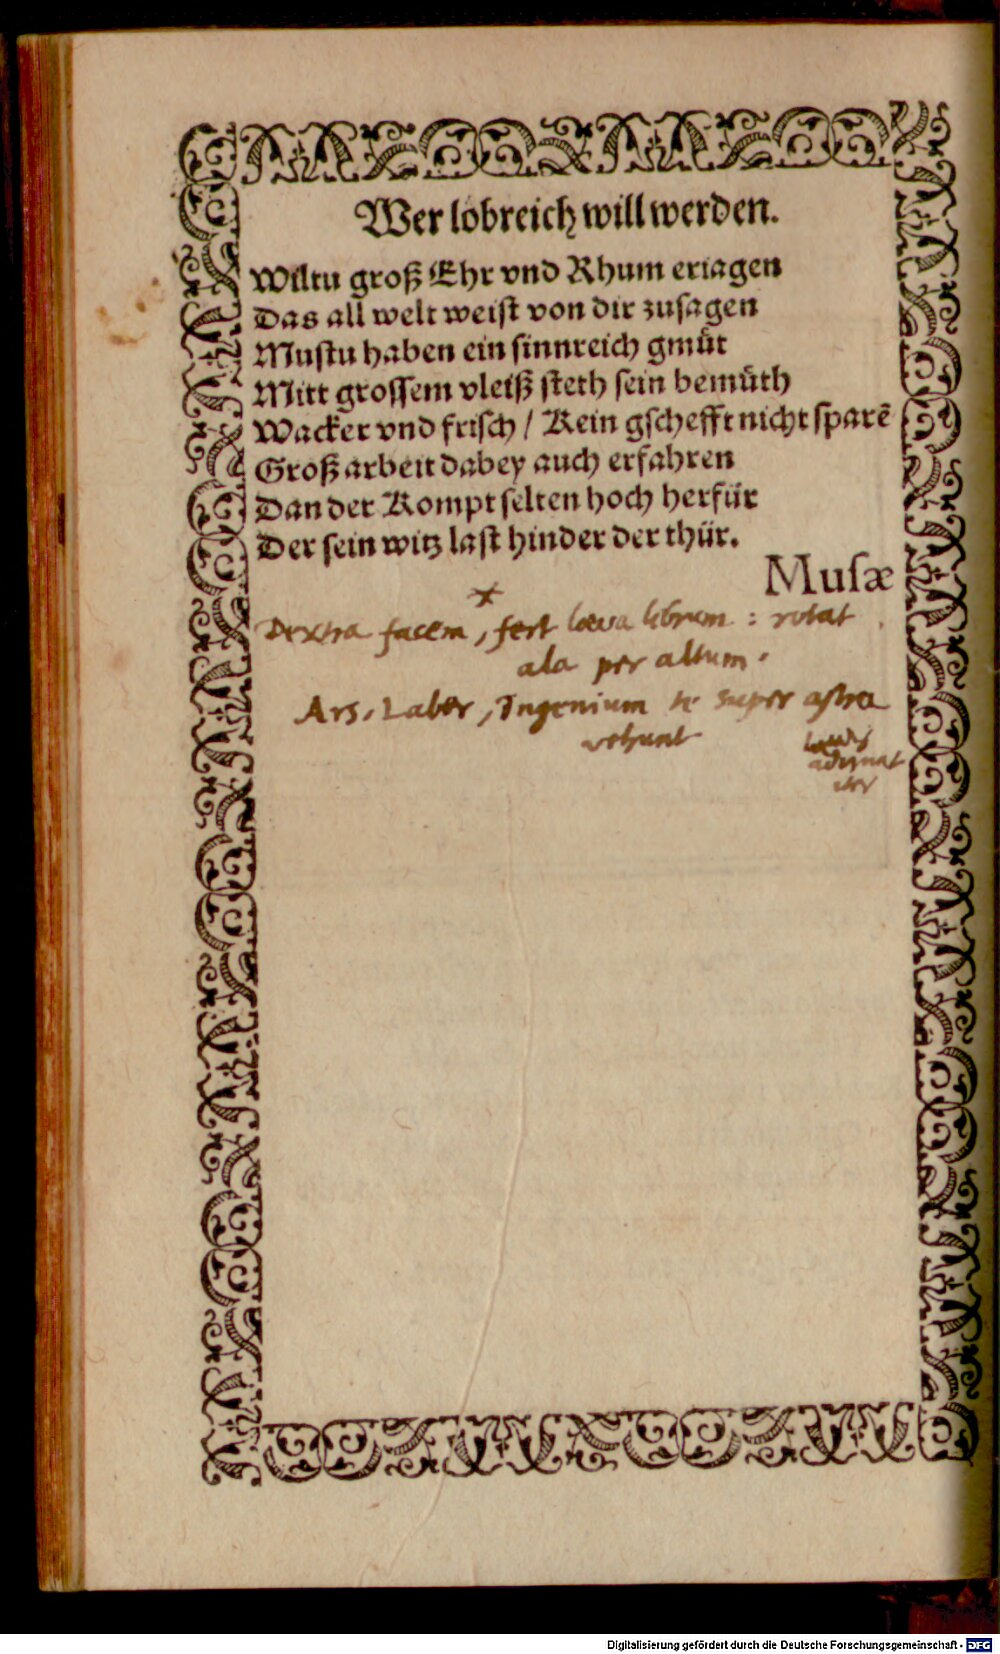 Wer lobreich will werden.
Wiltu groß Ehr vnd Rhum eriagen
Das all welt weist von dir zusagen
Mustu haben ein sinnreich gmüt
Mitt grossem vleiß steth sein bemüth
Wacker vnd frisch / Kein gschefft nicht sparē
Groß arbeit dabey auch erfahren
Dan der Kompt selten hoch herfür
Der sein witz last hinder der thür.
Musæ
Dextra facem, fert læva librum : rotat
ala per altum.
Ars, Labor, Ingenium te super astra
vehunt
iter
Digitalisierung gefördert durch die Deutsche Forschungsgemeinschaft - DFG